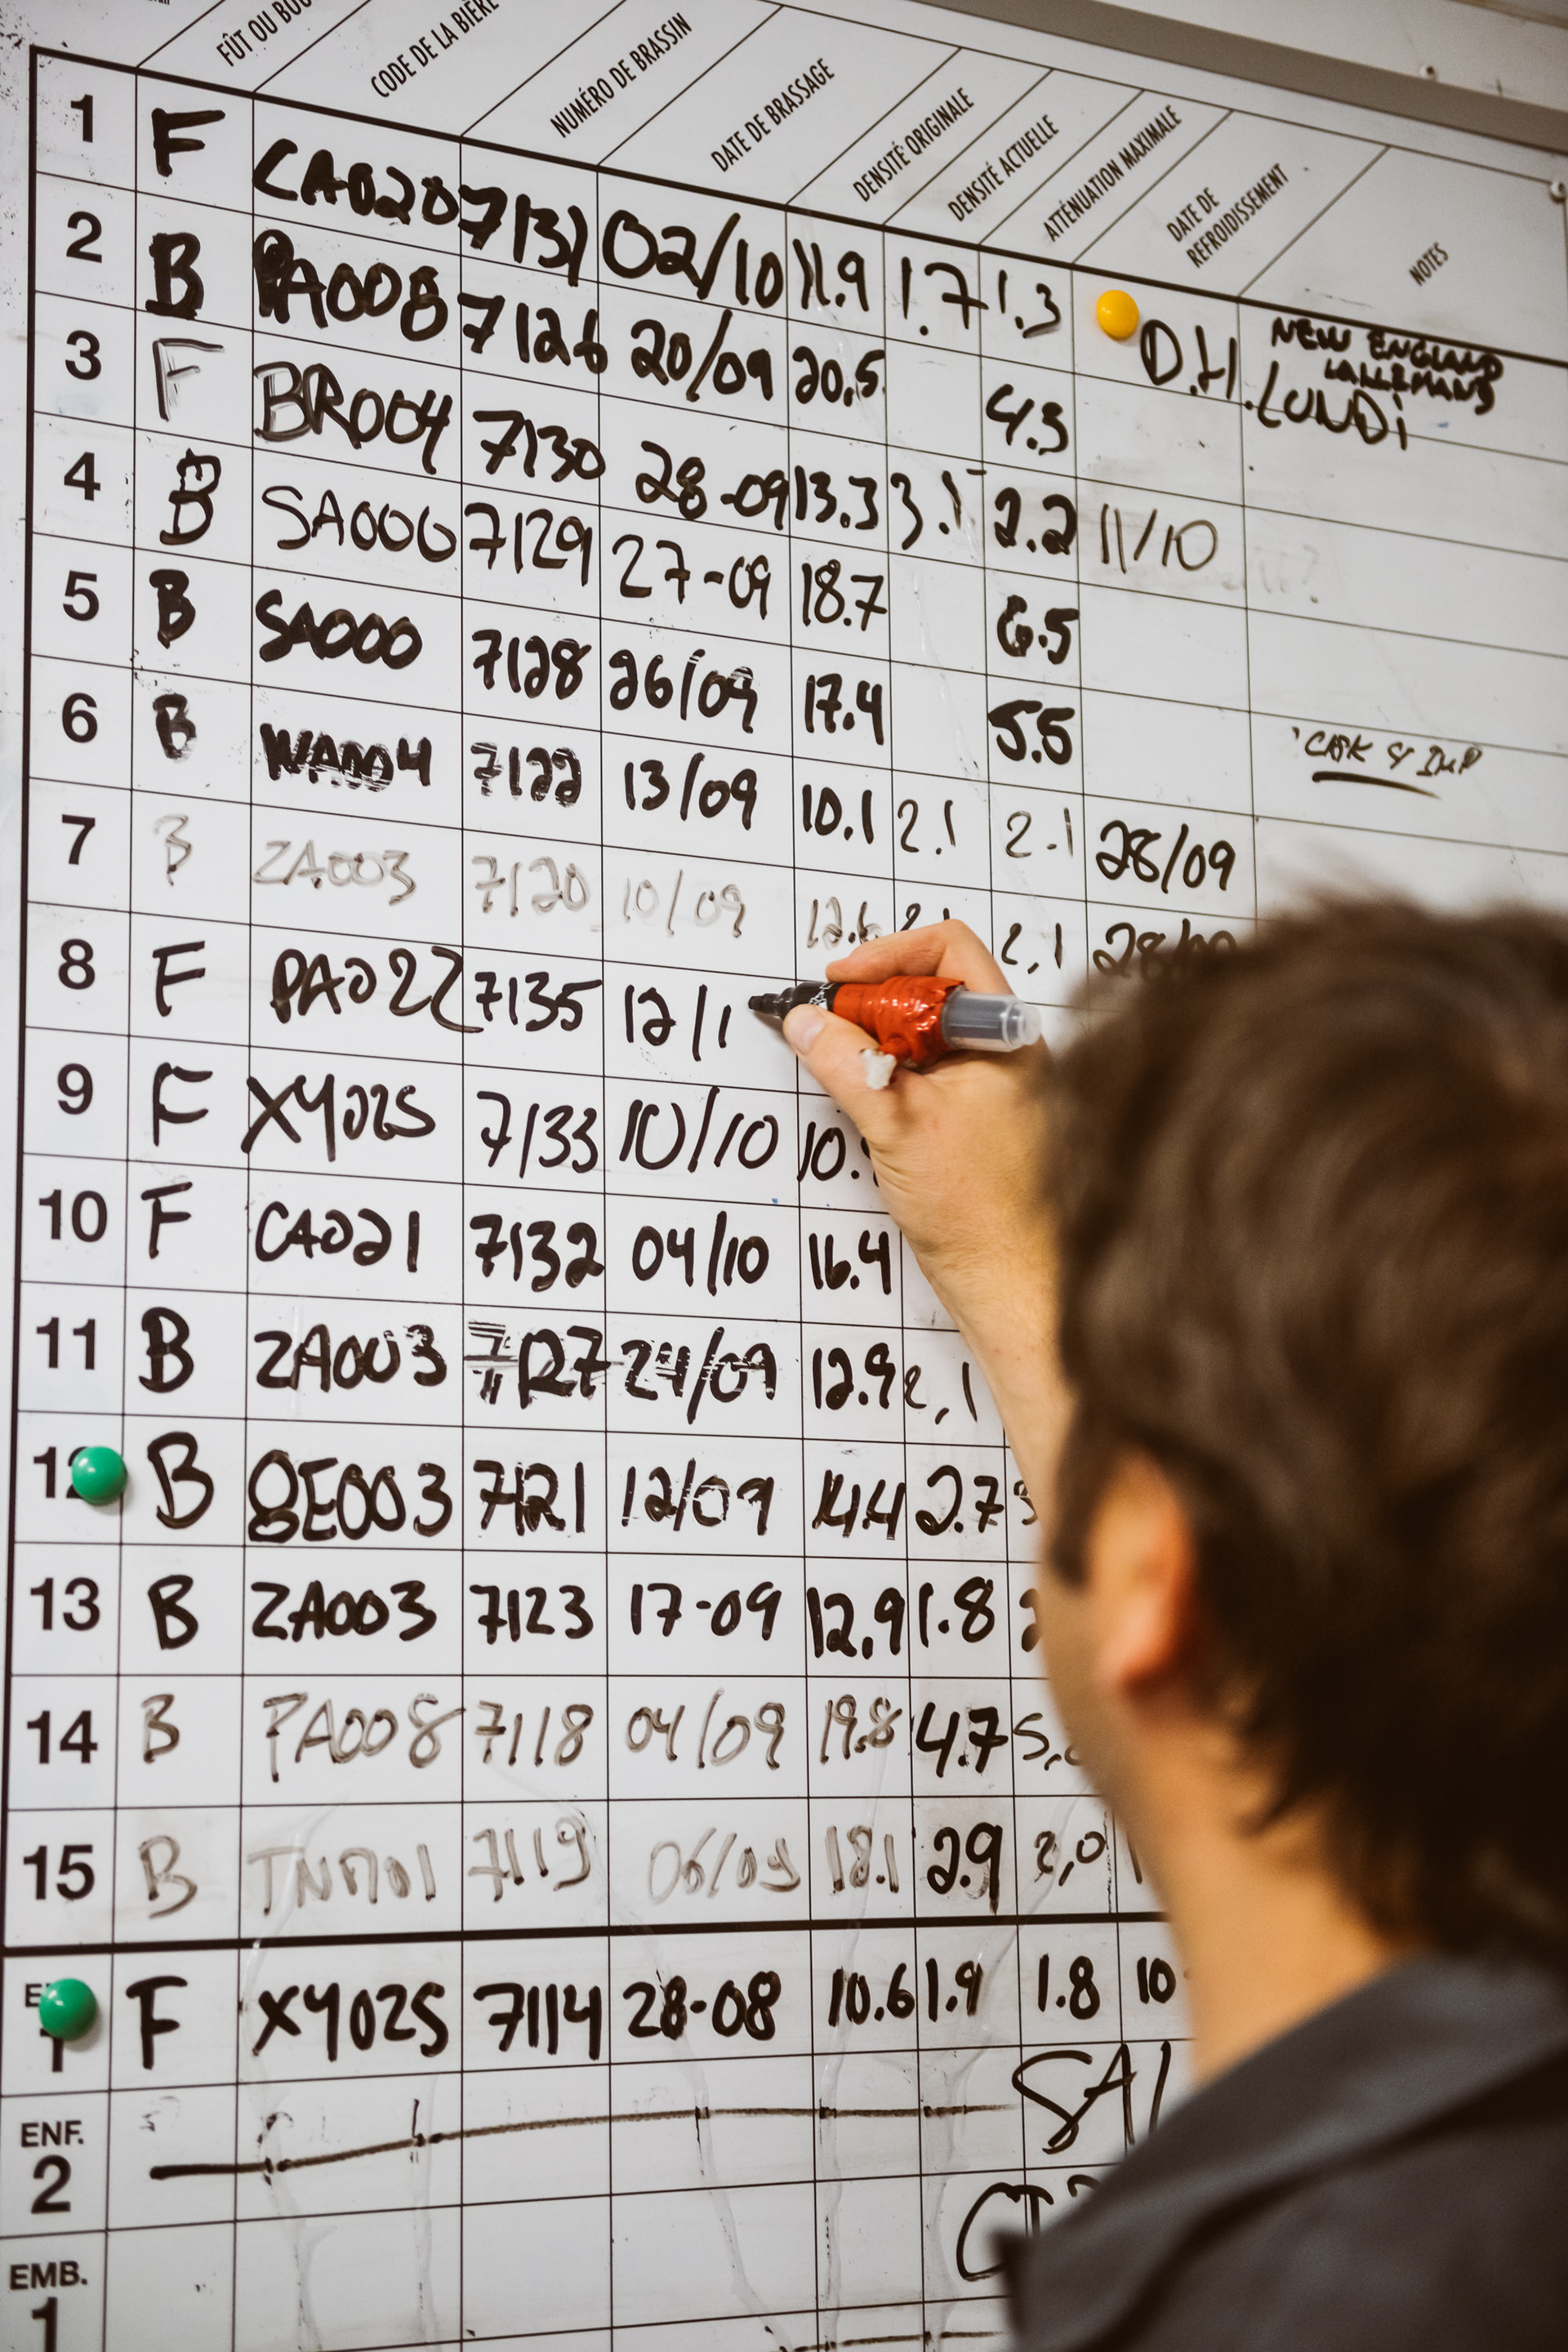 FÛT OU BOU
CODE DE LA BIÈRE
NUMÉRO DE BRASSIN
DATE DE BRASSAGE
DENSITÉ ORIGINALE
DENSITÉ ACTUELLE
ATTÉNUATION MAXIMALE
DATE DE
REFROIDISSEMENT
NOTES
1 F CA020 7131 02/10 11.9 1.7 1.3
NEW ENGLAND
LALLEMAND
2 B PA008 7126 20/09 20.5 4.3 D.H. LUNDi
3 F BR004 7130 28-09 13.3 3.1 2.2 11/10
4 B SA000 7129 27-09 18.7 6.5
5 B SA000 7128 26/09 17.4 5.5 CASK & IMP
6 B WA004 7122 13/09 10.1 2.1 2.1 28/09
7 B ZA003 7120 10/09 12.6 2.1 2,1
8 F PA022 7135 12/1
9 F XY025 7133 10/10 10.
10 F CA021 7132 04/10 16.4
11 B ZA003 7127 24/09 12.9 2,1
12 B GE003 7121 12/09 14.4 2.7
13 B ZA003 7123 17-09 12,9 1.8
14 B PA008 7118 04/09 19.8 4.7 5,
15 B 7119 06/09 18.1 2.9 2,0
1 F XY025 7114 28-08 10.6 1.9 1.8 10
ENF.
2
SAL
EMB.
1